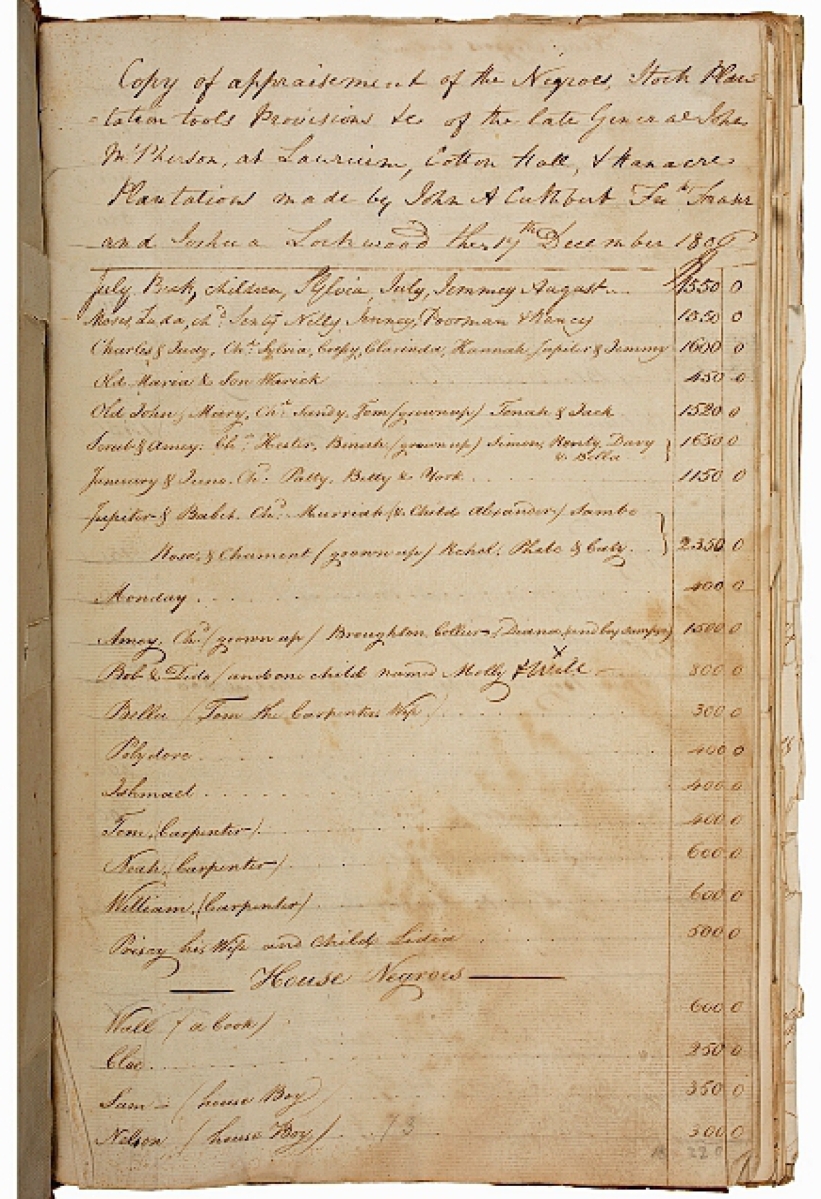 Copy of appraisement of the Negroes, Stock Plan
-tation tools Provisions &c of the late General John
McPherson, at Laurium, Cotton Hall, &
Plantations made by John A Cuthbert Fraser
and Joshua Lockwood the 17th December 180
July, Beck, children, Sylvia, July, Jemmey August 1550 0
Moses, Lada, chn Nelly Jenney, Dorman & Nancy 1350 0
Charles & Judy, Chn Sylvia, Clarinda, Hannah Jupiter & Jemmy 1600 0
Old Maria & Son Warick 450 0
Old John, Mary, Chn Sandy, Tom (grown up) Jonah & Jack 1520 0
Scrub & Amey. Chn Hester, Binah (grown up) Simon, Davy 1650 0
& Bella
January & Juno. Chn. Patty, Betty & York 1150 0
Jupiter & Chn. Murriah (& Child Alexander) Sambo
Rose, & Chament (grown up) Phebe & 2350 0
Monday 400 0
Amey. Chn (grown up) Broughton, 1500 0
Bob & Dido (and one child named Molly & Will 800 0
Bella (Tom the Carpenters Wife) 300 0
Polydore 400 0
Ishmael 400 0
Tom, (Carpenter) 400 0
Noah, (Carpenter) 600 0
William, (Carpenter) 600 0
his Wife and Child Lidia 500 0
House Negroes
Will (a Cook) 600 0
Cloe 250 0
Sam (house Boy) 350 0
Nelson (house Boy) 73 300 0